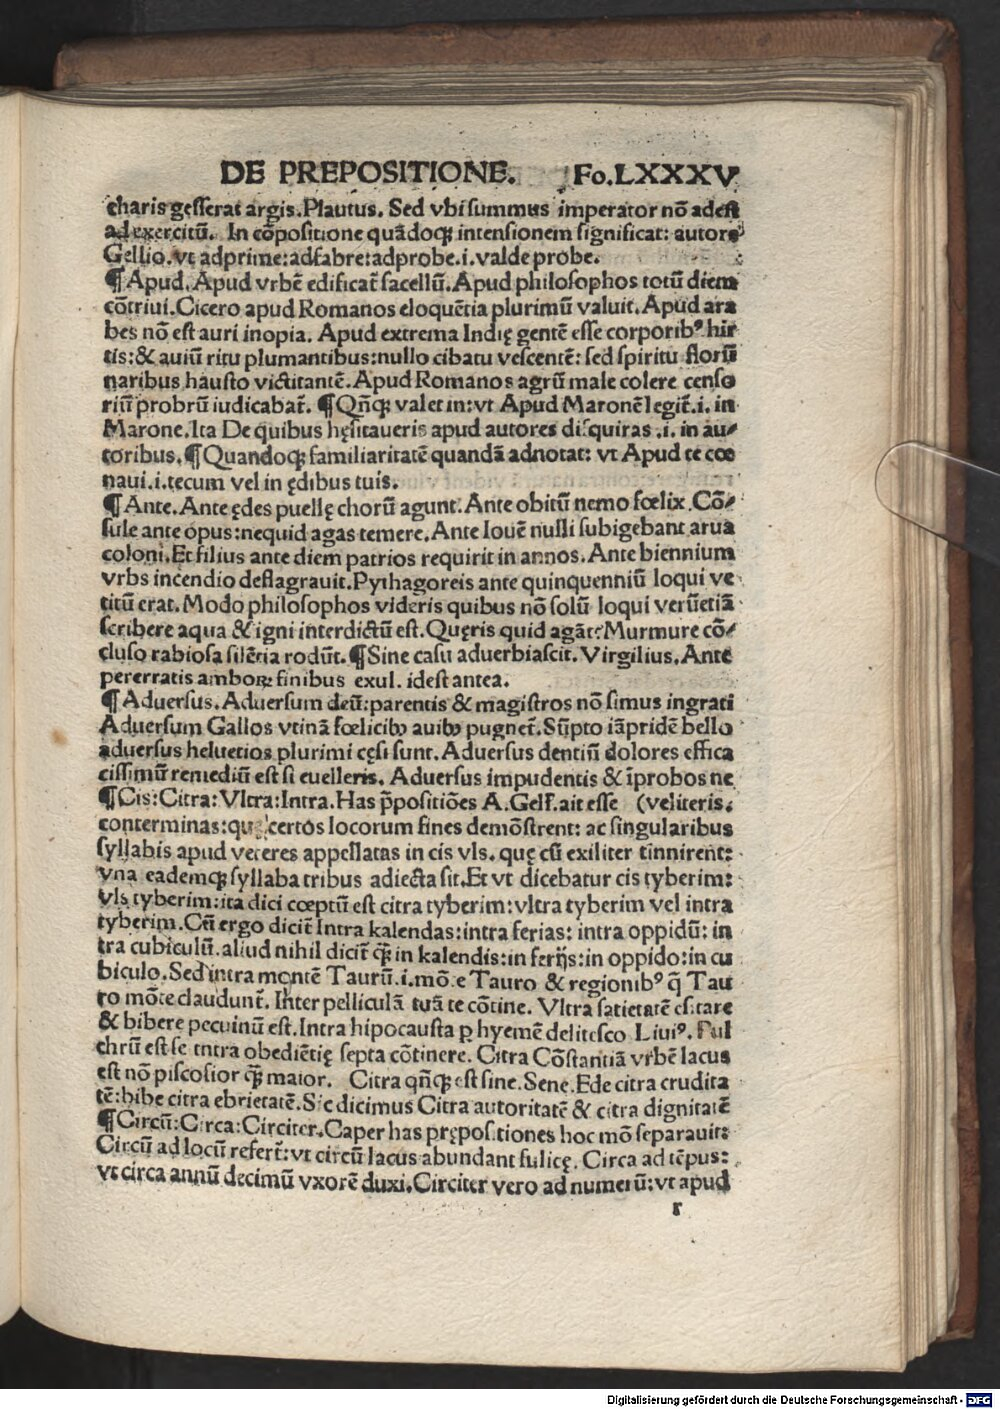 DE PREPOSITIONE. Fo.LXXXV
charis gesserat argis.Plautus. Sed vbi summus imperator nō adest
ad exercitū. In cōpositione quādoqꝫ intensionem significat: autore
Gellio.vt adprime:adfabre:adprobe.i.valde probe.
¶Apud.Apud vrbē edificat̄ sacellū.Apud philosophos totū diem
cōtriui.Cicero apud Romanos eloquētia plurimū valuit.Apud ara
bes nō est auri inopia. Apud extrema Indię gentē esse corporibꝰ hir
tis:& auiū ritu plumantibus:nullo cibatu vescentē: sed spiritu florū
naribus hausto victitantē.Apud Romanos agrū male colere censo
riū probrū iudicabat̄. ¶Qn̄qꝫ valet in:vt Apud Maronē legit̄.i. in
Marone.Ita De quibus hęsitaueris apud autores disquiras .i. in au⸗
toribus.¶Quandoqꝫ familiaritatē quandā adnotat: vt Apud te coe
naui.i.tecum vel in ędibus tuis.
¶Ante.Ante ędes puellę chorū agunt.Ante obitū nemo fœlix.Cō⸗
sule ante opus:nequid agas temere.Ante Iouē nulli subigebant arua
coloni.Et filius ante diem patrios requirit in annos.Ante biennium
vrbs incendio deflagrauit.Pythagoreis ante quinquenniū loqui ve
titū erat.Modo philosophos videris quibus nō solū loqui verūetiā
scribere aqua & igni interdictū est.Quęris quid agāt?Murmure cō⸗
cluso rabiosa silētia rodūt.¶Sine casu aduerbiascit.Virgilius.Ante
pererratis amboꝝ finibus exul. idest antea.
¶Aduersus.Aduersum deū:parentis & magistros nō simus ingrati
Aduersum Gallos vtinā fœlicibꝰ auibꝰ pugnet̄.Sūpto iāpridē bello
aduersus heluetios plurimi cęsi sunt.Aduersus dentiū dolores effica
cissimū remediū est si euelleris. Aduersus impudentis & īprobos ne
¶Cis:Citra:Vltra:Intra.Has p̄positiōes A.Gell.ait esse (veliteris.
conterminas:quę certos locorum fines demōstrent: ac singularibus
syllabis apud veteres appellatas in cis vls. quę cū exiliter tinnirent:
vna eademqꝫ syllaba tribus adiecta sit.Et vt dicebatur cis tyberim:
vls tyberim:ita dici cœptū est citra tyberim:vltra tyberim vel intra
tyberim.Cū ergo dicit̄ Intra kalendas:intra ferias: intra oppidū: in
tra cubiculū.aliud nihil dicit̄ qꝫ̄ in kalendis:in ferijs:in oppido:in cu
biculo.Sed intra montē Taurū.i.mōte Tauro & regionibꝰ q̄ Tau
ro mōte claudunt̄. Inter pelliculā tuā te cōtine. Vltra satietatē esitare
& bibere pecuinū est.Intra hipocausta ꝑ hyemē delitesco Liuiꝰ. Pul
chrū est se intra obediētię septa cōtinere. Citra Cōstantiā vrbē lacus
est nō piscosior qꝫ̄ maior. Citra qn̄qꝫ est sine.Sene.Ede citra crudita
tē:bibe citra ebrietatē.Sic dicimus Citra autoritatē & citra dignitatē
¶Circū:Circa:Circiter.Caper has prępositiones hoc mō separauit:
Circū ad locū refert̄:vt circū lacus abundant fulicę. Circa ad tēpus:
vt circa annū decimū vxorē duxi.Circiter vero ad numerū:vt apud
r
Digitalisierung gefördert durch die Deutsche Forschungsgemeinschaft - DFG